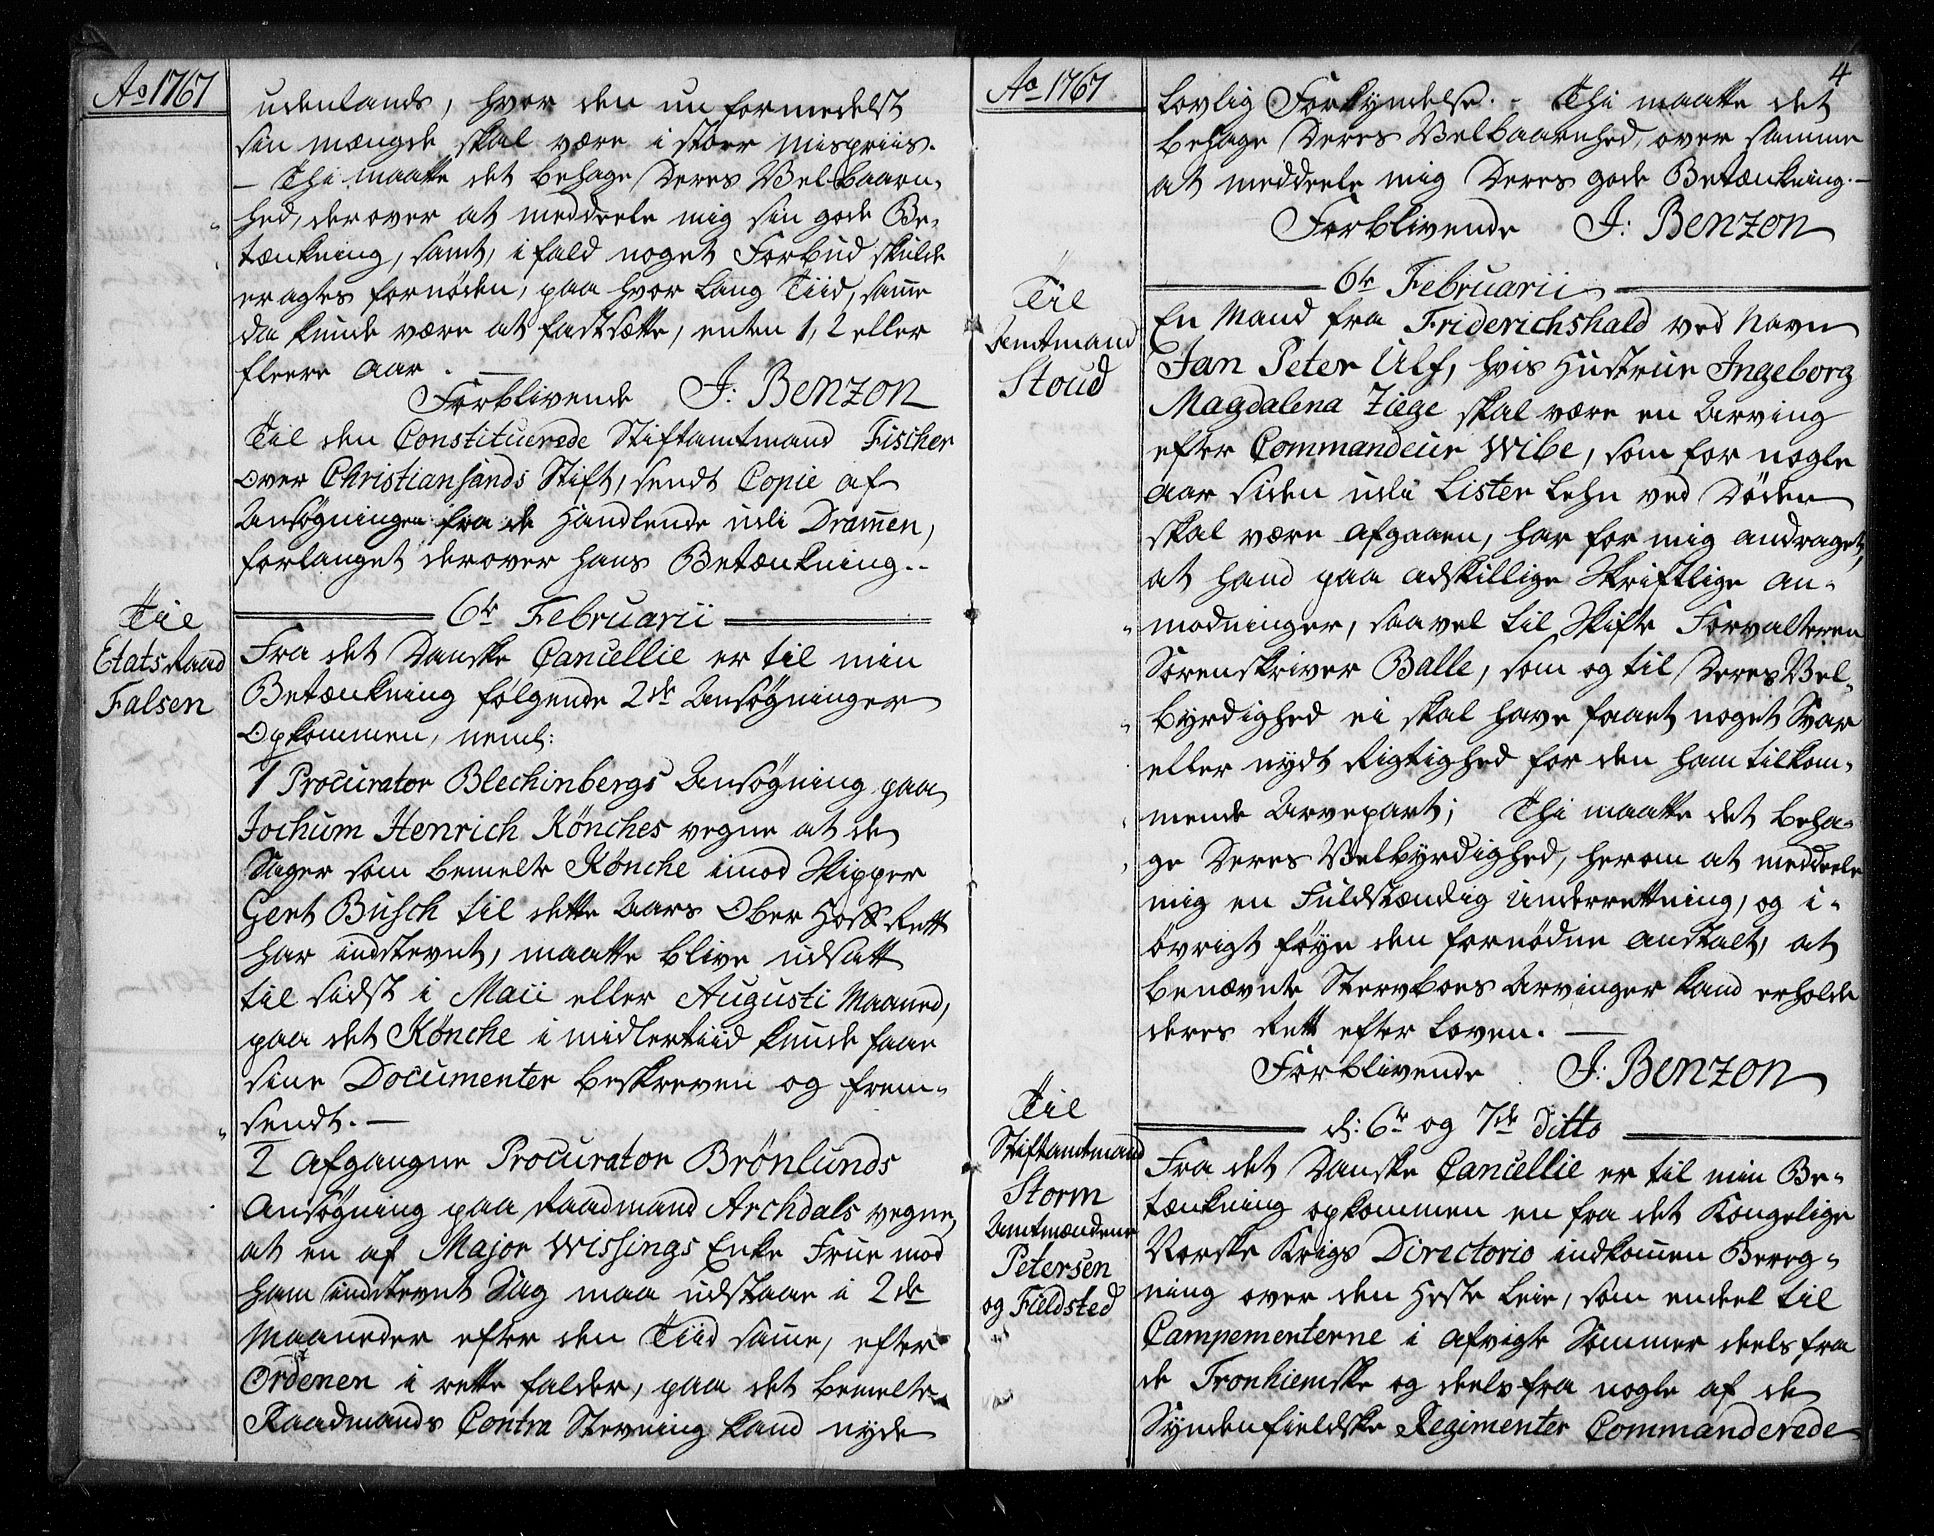 Ao 1767
udenlands, hvor den nu formedelst
sin mængde skal være i stoer mispriis.
— Thi maatte det behage Deres Velbaarn-
hed, derover at meddeele mig sin gode Be-
tænkning, samt, i fald noget Forbud skulde
eragtes fornöden, paa hvor lang Tiid, sam̅e
da kunde være at fastsætte, enten 1, 2 eller
fleere Aar. —
Forblivende J: Benzon
Til den Constituerede Stiftamtmand Fischer
over Christiansands Stift, sendt Copie af
Ansøgningen fra de Handlende udi Dram̅en,
forlanget derover hans Betænkning..
6te Februarii
Til
Etats Raad
Falsen
Fra det Danske Cancellie er til min
Betænkning følgende 2de Ansøgninger
Opkommen, neml:
1 Procurator Blechinbergs Ansøgning paa
Jochum Henrich Könches vegne at de
Sager som bemelte Könche imod Skipper
Gert Busch til dette Aars Ober Hoff-Rett
har indstevnt, maatte blive udsatt
til sidst i Maii eller Augusti Maaned,
paa det Könche imidlertiid kunde faae
sine Documenter beskreven og frem-
sendt. —
2 Afgangne Procurator Brönlunds
Ansøgning paa Raadmand Archdals vegne,
at en af Major Wissings Enke Frue mod
ham indstevnt Sag maa udstaae i 2de
Maaneder efter den Tiid sam̅e, efter
Ordenen i rette falder, paa det bemelte
Raadmands Contra Stevning kand nyde
Ao 1767
4
lovlig Forkyndelse. - Thi maatte det
behage Deres Velbaarnhed, over samme
at meddeele mig Deres gode Betænkning. —
Forblivende J: Benzon
6te Februarii
Til
Amtmand
Stoud
En Mand fra Friderichshald ved Navn
Jan Peter Ulf, hvis Hustrue Ingeborg
Magdalena Ziege skal være en Arving
efter Commandeur Wibe, som for nogle
Aar siden udi Lister Lehn ved Döden
skal være afgaaen, har for mig andraget,
at hand paa adskillige Skriftlige an-
modninger, saavel til Skifte Forvalteren
Sorenskriver Balle, som og til Deres Vel-
byrdighed ei skal have faaet noget Svar
eller nydt Rigtighed for den ham tilkom-
mende Arvepart; Thi maatte det beha-
ge Deres Velbyrdighed, herom at meddeele
mig en Fuldstændig Underrettning, og i-
övrigt föye den fornödne Anstalt, at
benævnte Sterboes Arvinger kand erholde
deres Rett efter Loven. —
Forblivende J: Benzon
d: 6te og 7de Ditto
Til
Stiftamtmand
Storm
Amtmændene
Petersen
og Fieldsted
Fra det Danske Cancellie er til min Be-
tænkning opkommen en fra det Kongelige
Norske Krigs Directorio indkom̅en Bereg-
ning over den Heste Leie, som endeel til
Campementerne i afvigte Sommer deels fra
de Tronhiemske og deels fra nogle af de
Syndenfieldske Regimenter Commanderede